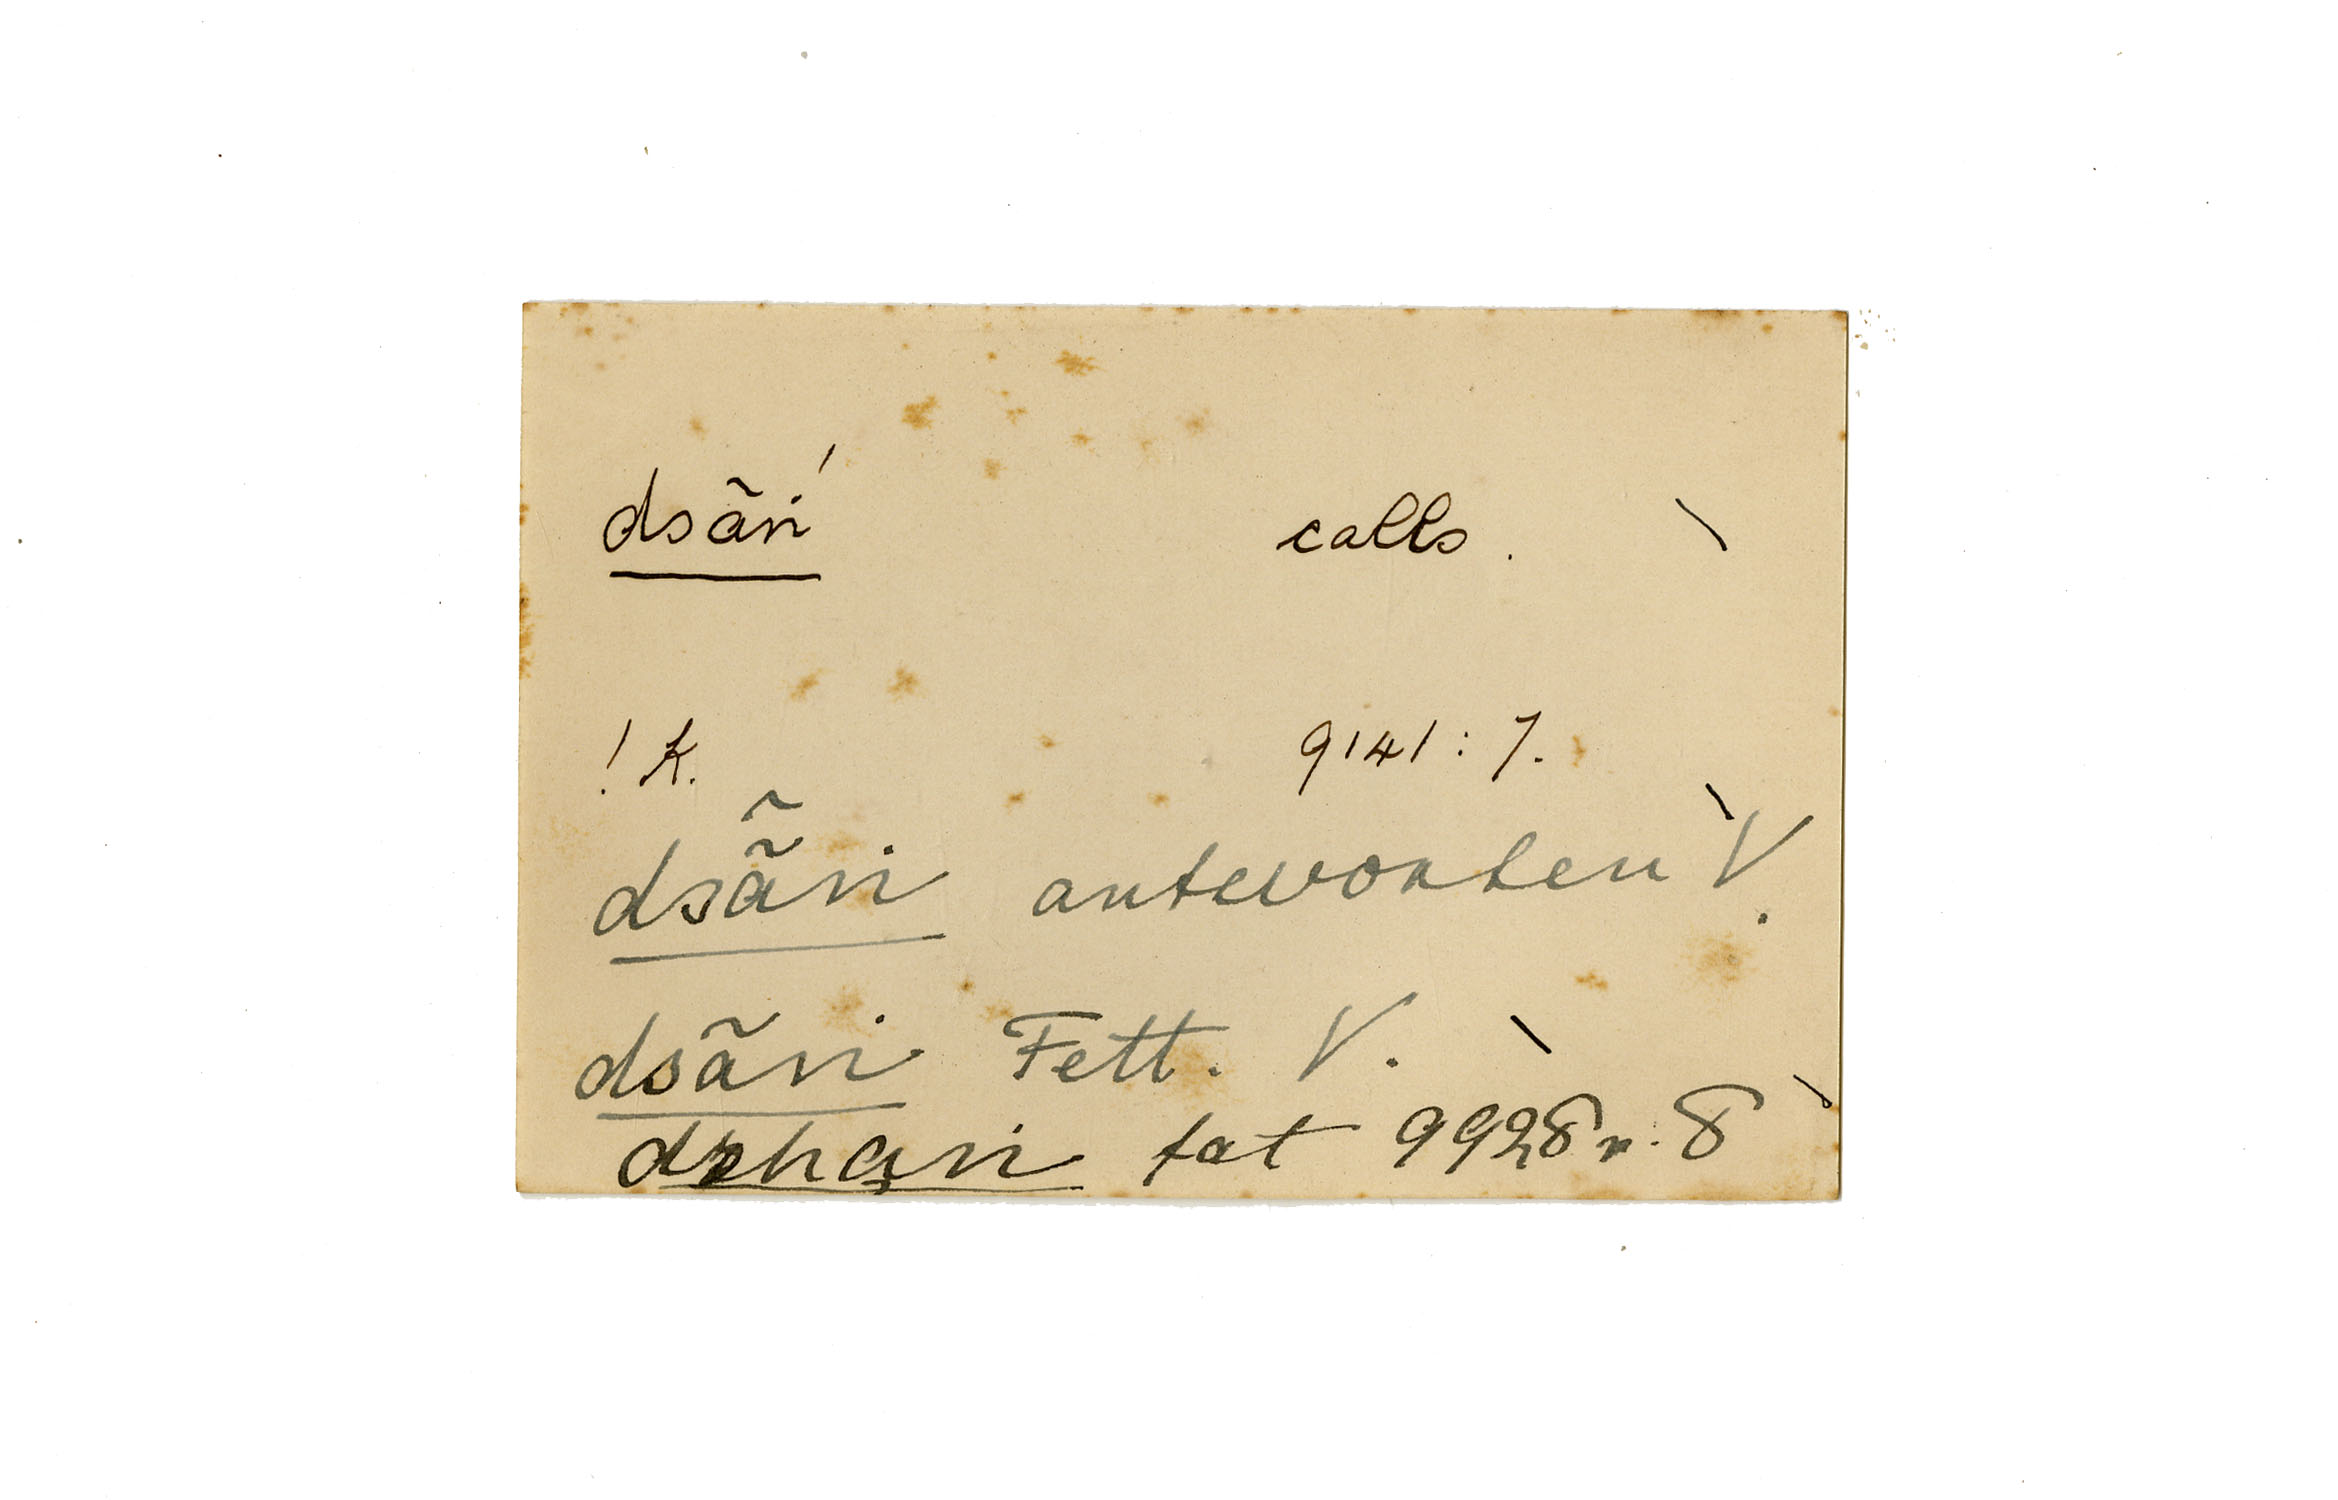 dsãri' calls. \
!K. 9141:7.
dsãri antworten V. \
dsãri Fett. V. \
dzhąri fat 9928 r. 8 \